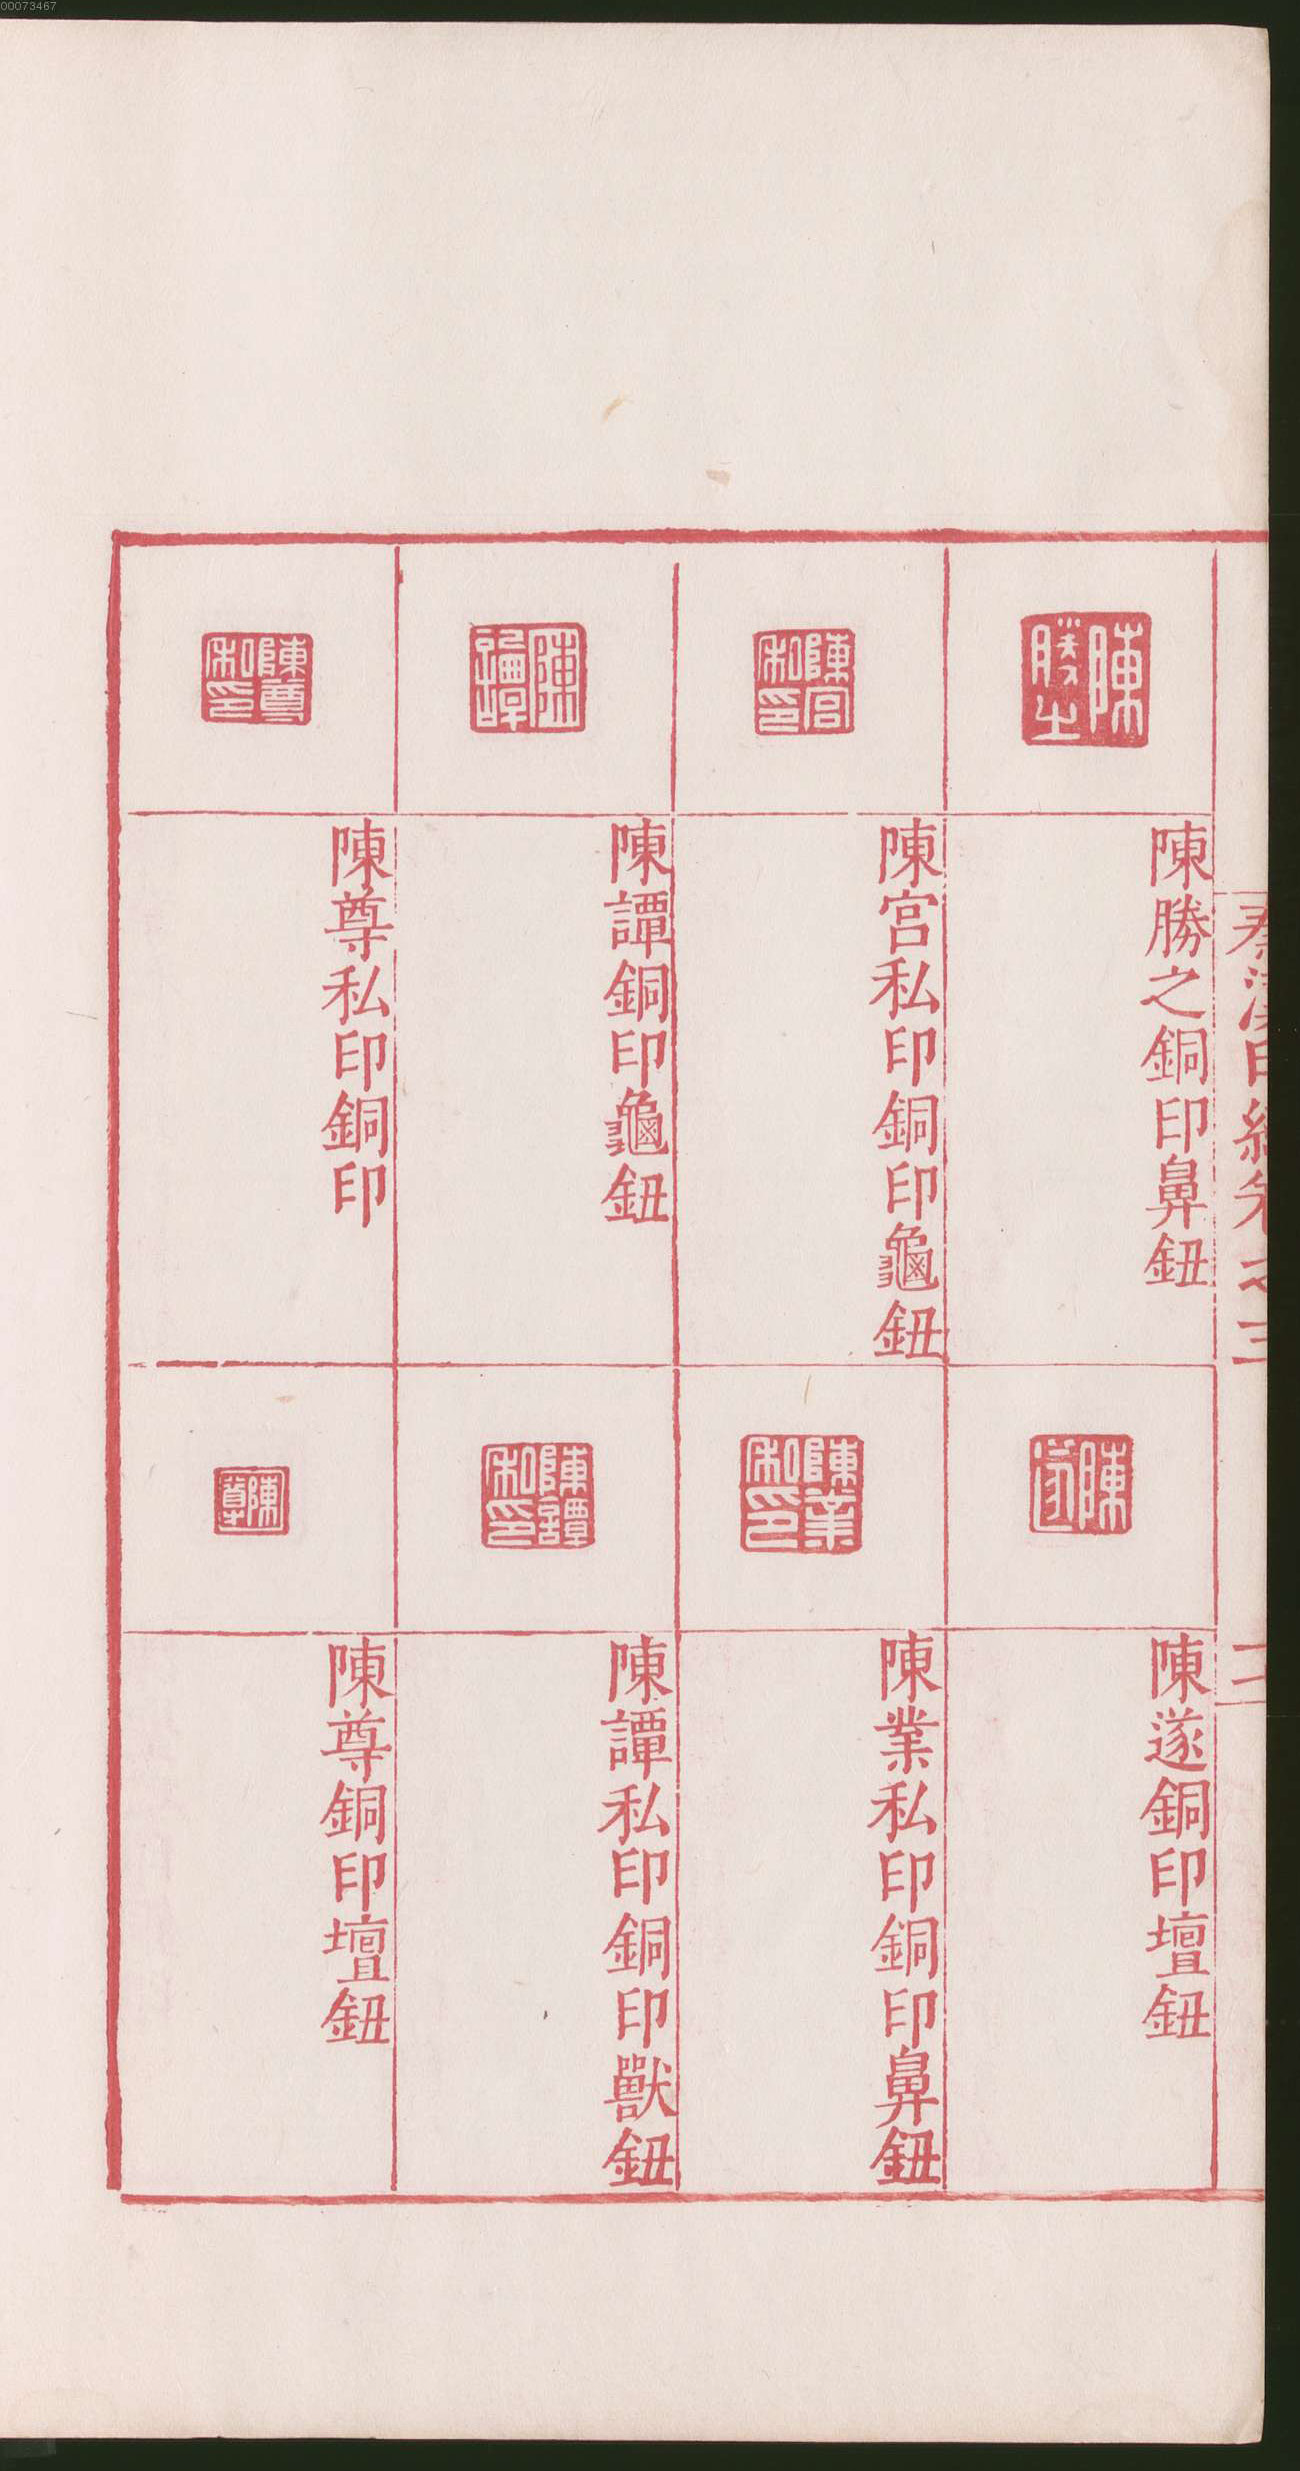 00073467
秦漢印統卷之三
二
陳勝之
陳勝之銅印鼻鈕
陳宮私印
陳宮私印銅印龜鈕
陳譚
陳譚銅印龜鈕
陳尊私印
陳尊私印銅印
陳遂
陳遂銅印壇鈕
陳業私印
陳業私印銅印鼻鈕
陳譚私印
陳譚私印銅印獸鈕
陳尊
陳尊銅印壇鈕